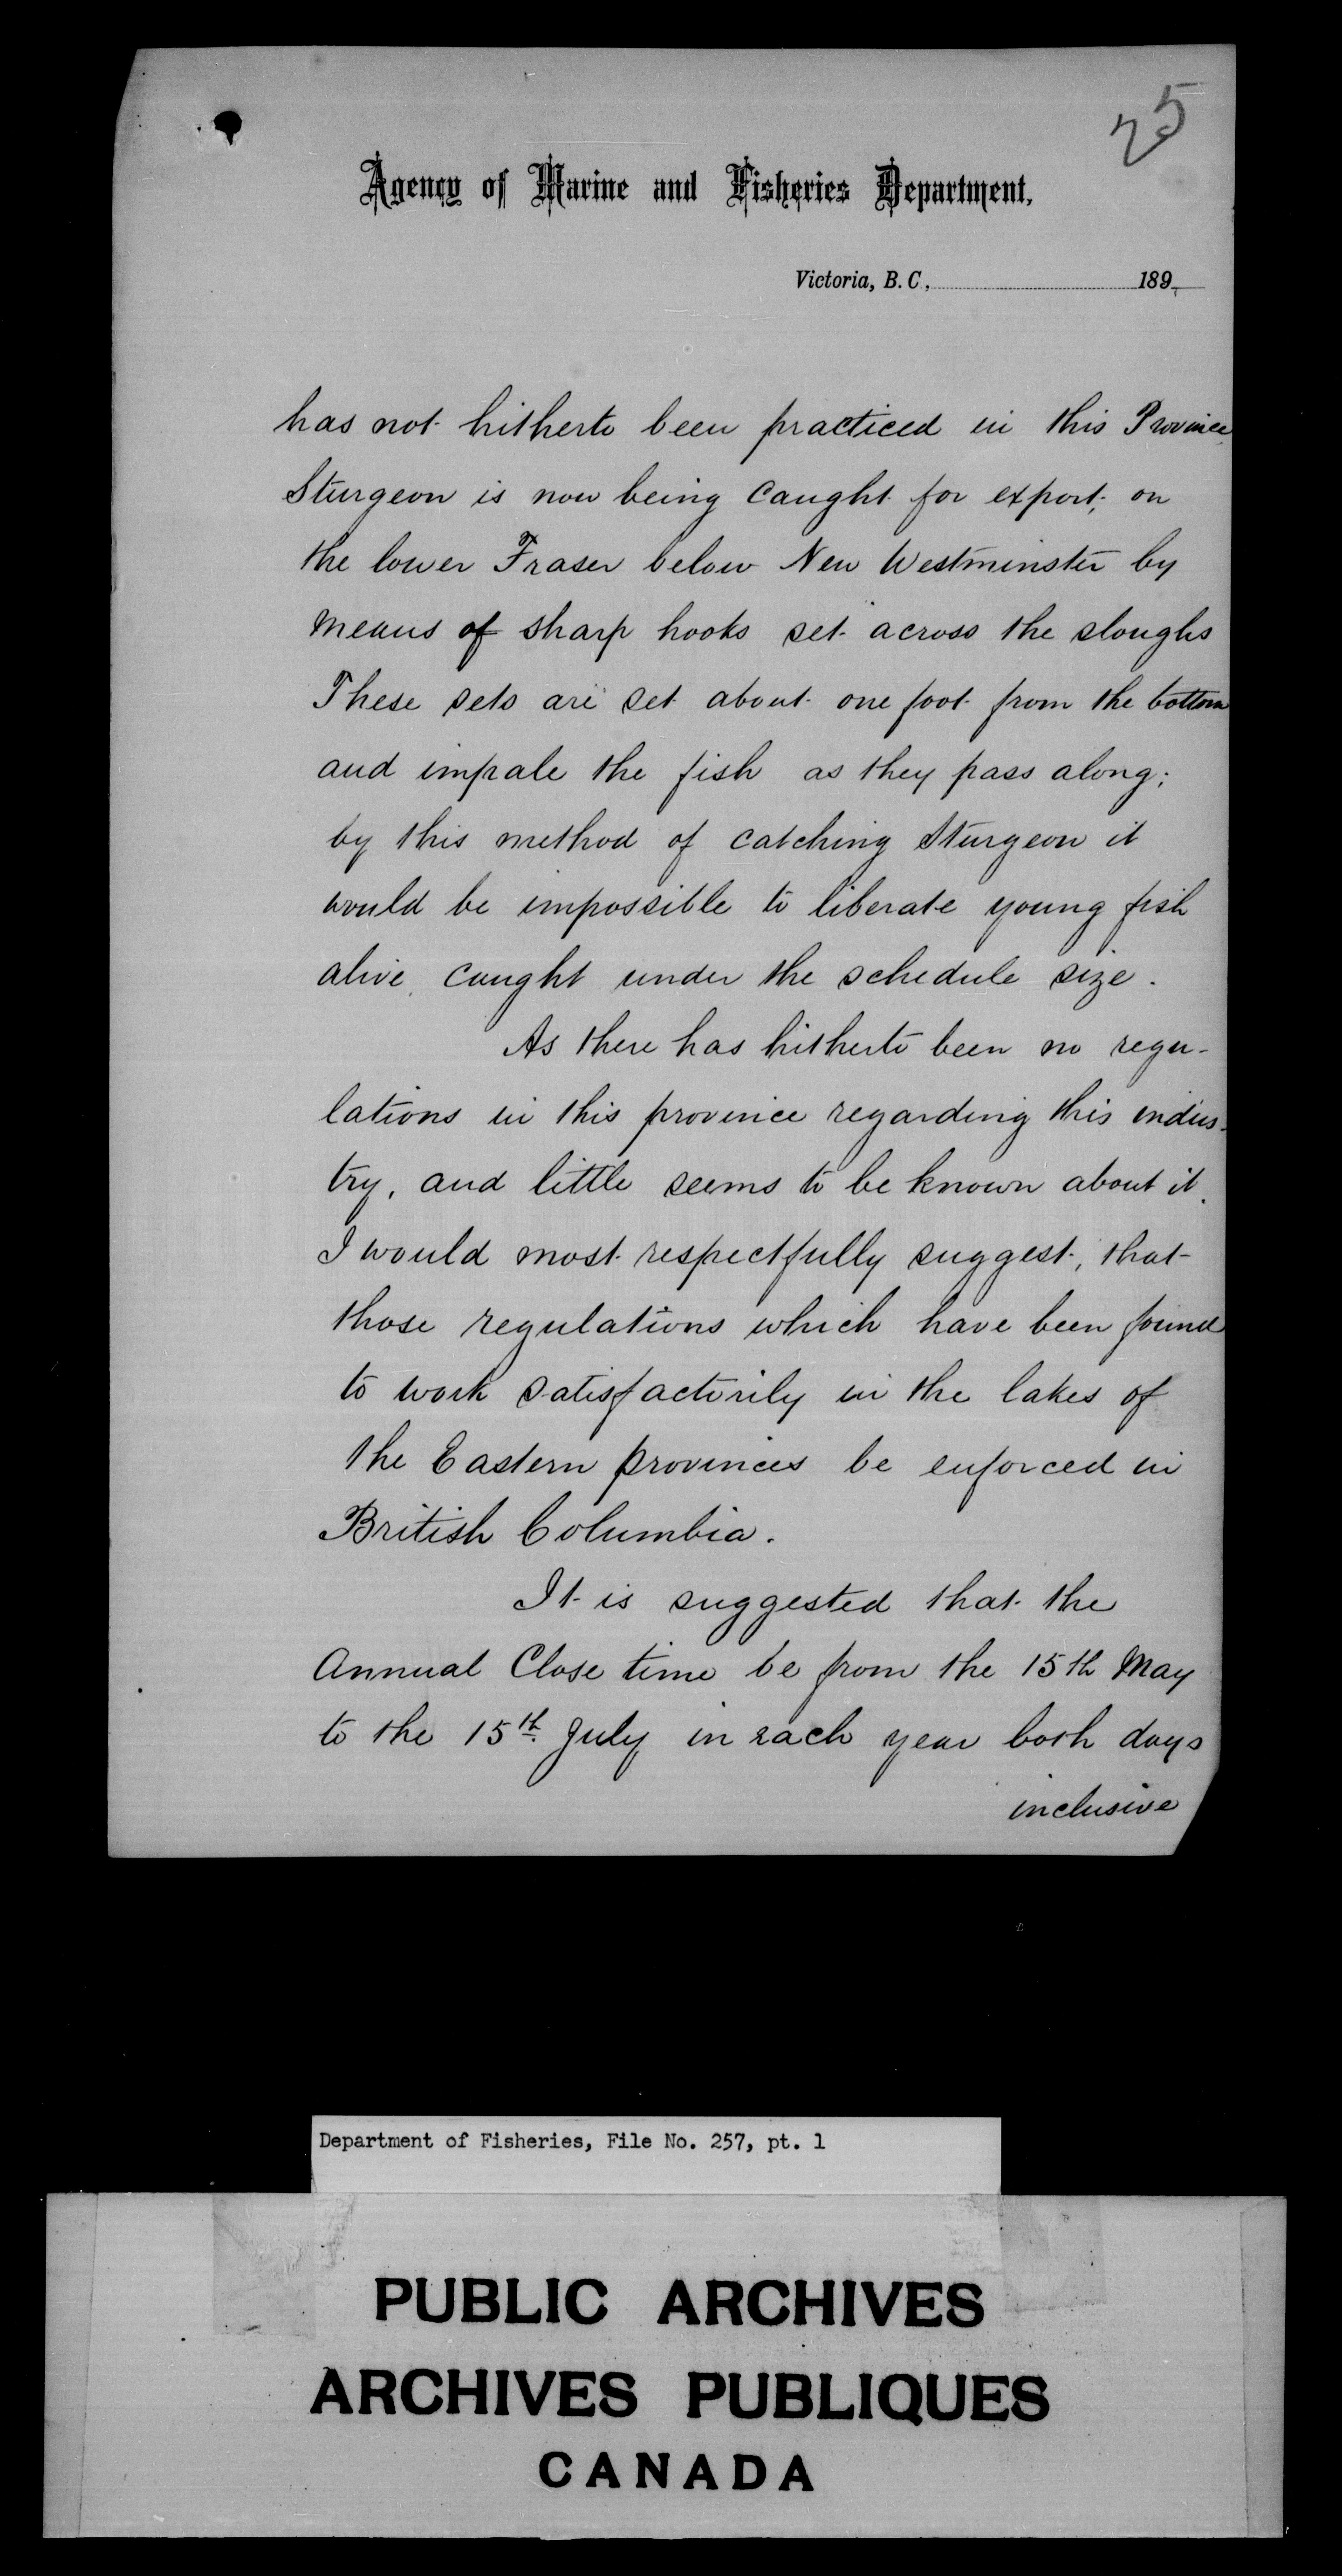 25
Agency of Marine and Fisheries Department,
Victoria, B.C., 189
has not hitherto been practiced in this Province
Sturgeon is now being caught for export, on
the lower Fraser below New Westminster by
means of sharp hooks set across the sloughs
These sets are set about one foot from the bottom
and impale the fish as they pass along;
by this method of catching Sturgeon it
would be impossible to liberate young fish
alive, caught under the schedule size.
As there has hitherto been no regu-
lations in this province regarding this indus-
try, and little seems to be known about it.
I would most respectfully suggest, that
those regulations which have been found
to work satisfactorily in the lakes of
the Eastern provinces be enforced in
British Columbia.
It is suggested that the
Annual Close time be from the 15th May
to the 15th July in each year both days
inclusive
Department of Fisheries, File No. 257, pt. 1
PUBLIC ARCHIVES
ARCHIVES PUBLIQUES
CANADA